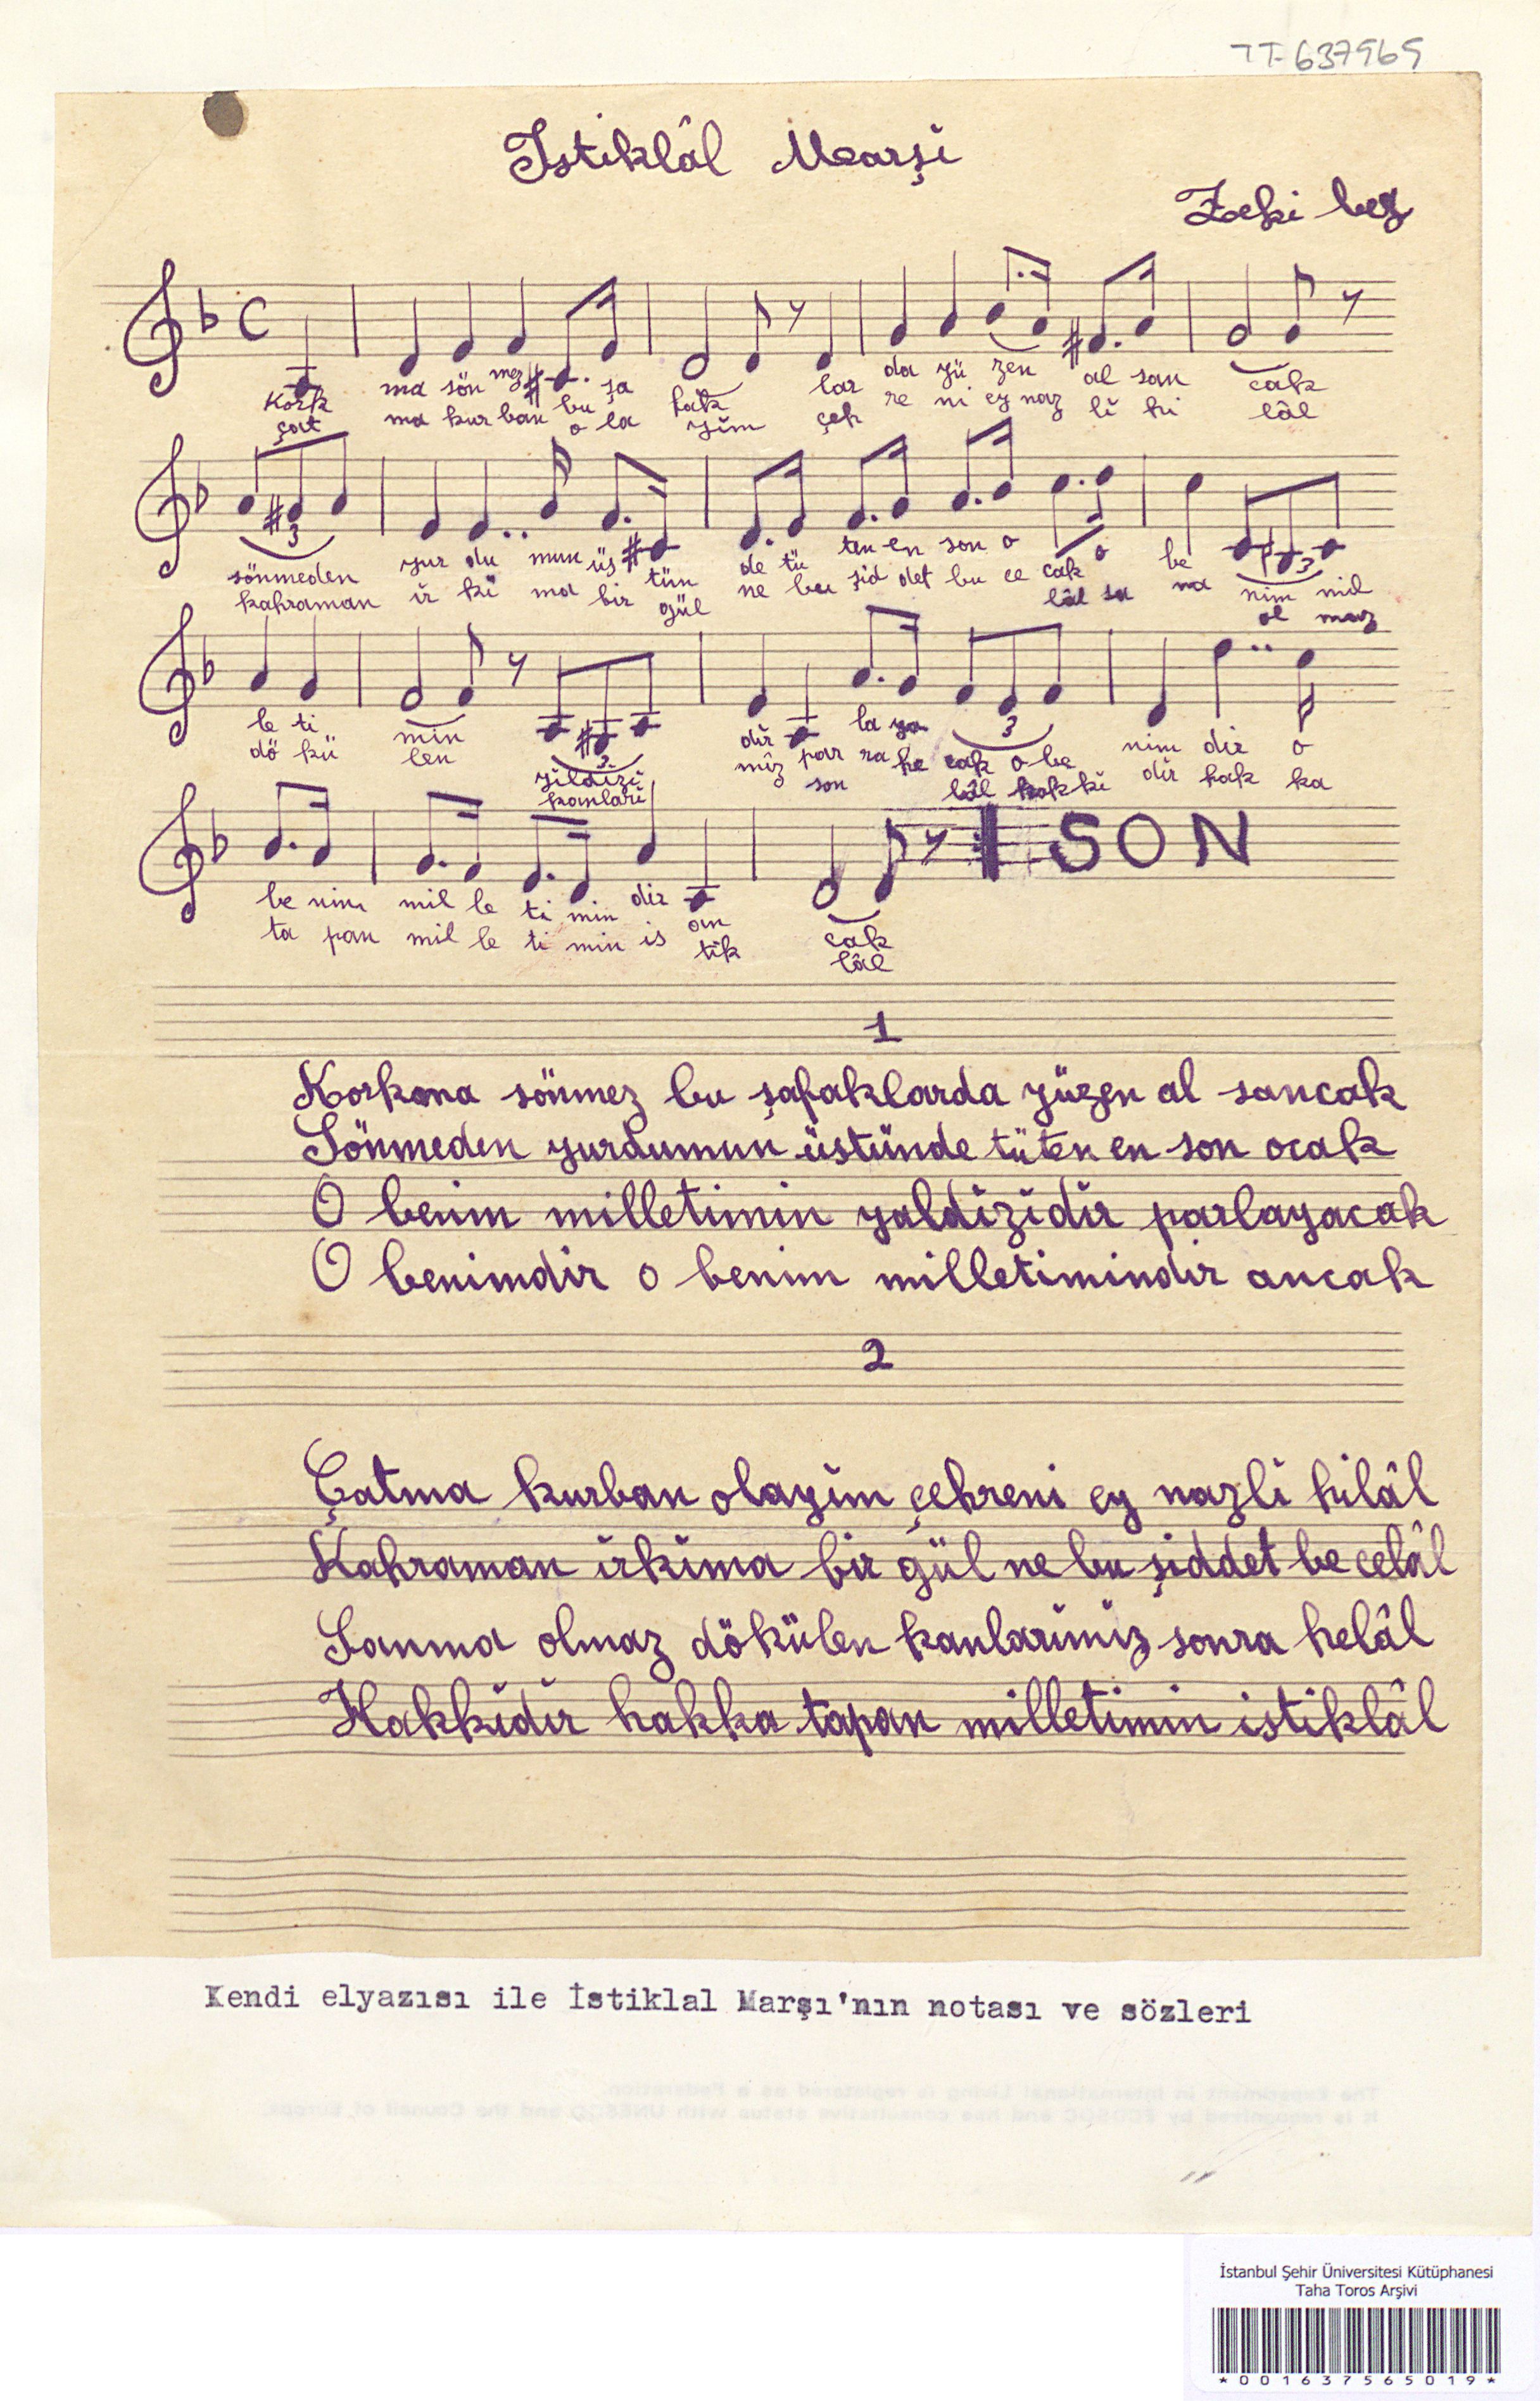 TT-637969
Istiklâl Marşi
Zeki bey
Kork ma sön mez bu şa fak lar da yü zen al san cak
çat ma kur ban o la yim çeh re ni ey naz li hi lâl
sönmeden yur du mun üs tün de tü ten en son o cak o be nim mil
kahraman ir ki ma bir gül ne bu şid det bu ce lâl sa na ol maz
le ti min yildizi dir par la ya cak o be nim dir o
dö kü len kanlari miz son ra he lâl hakki dir hak ka
be nim mil le ti min dir an cak
ta pan mil le ti min is tik lâl
SON
1
Korkma sönmez bu şafaklarda yüzen al sancak
Sönmeden yurdumun üstünde tüten en son ocak
O benim milletimin yaldizidir parlayacak
O benimdir o benim milletimindir ancak
2
Çatma kurban olayim çehreni ey nazli hilâl
Kahraman irkima bir gül ne bu şiddet be celâl
Sanma olmaz dökülen kanlarimiz sonra helâl
Hakkidir hakka tapan milletimin istiklâl
Kendi elyazısı ile İstiklal Marşı'nın notası ve sözleri
İstanbul Şehir Üniversitesi Kütüphanesi
Taha Toros Arşivi
*001637565019*